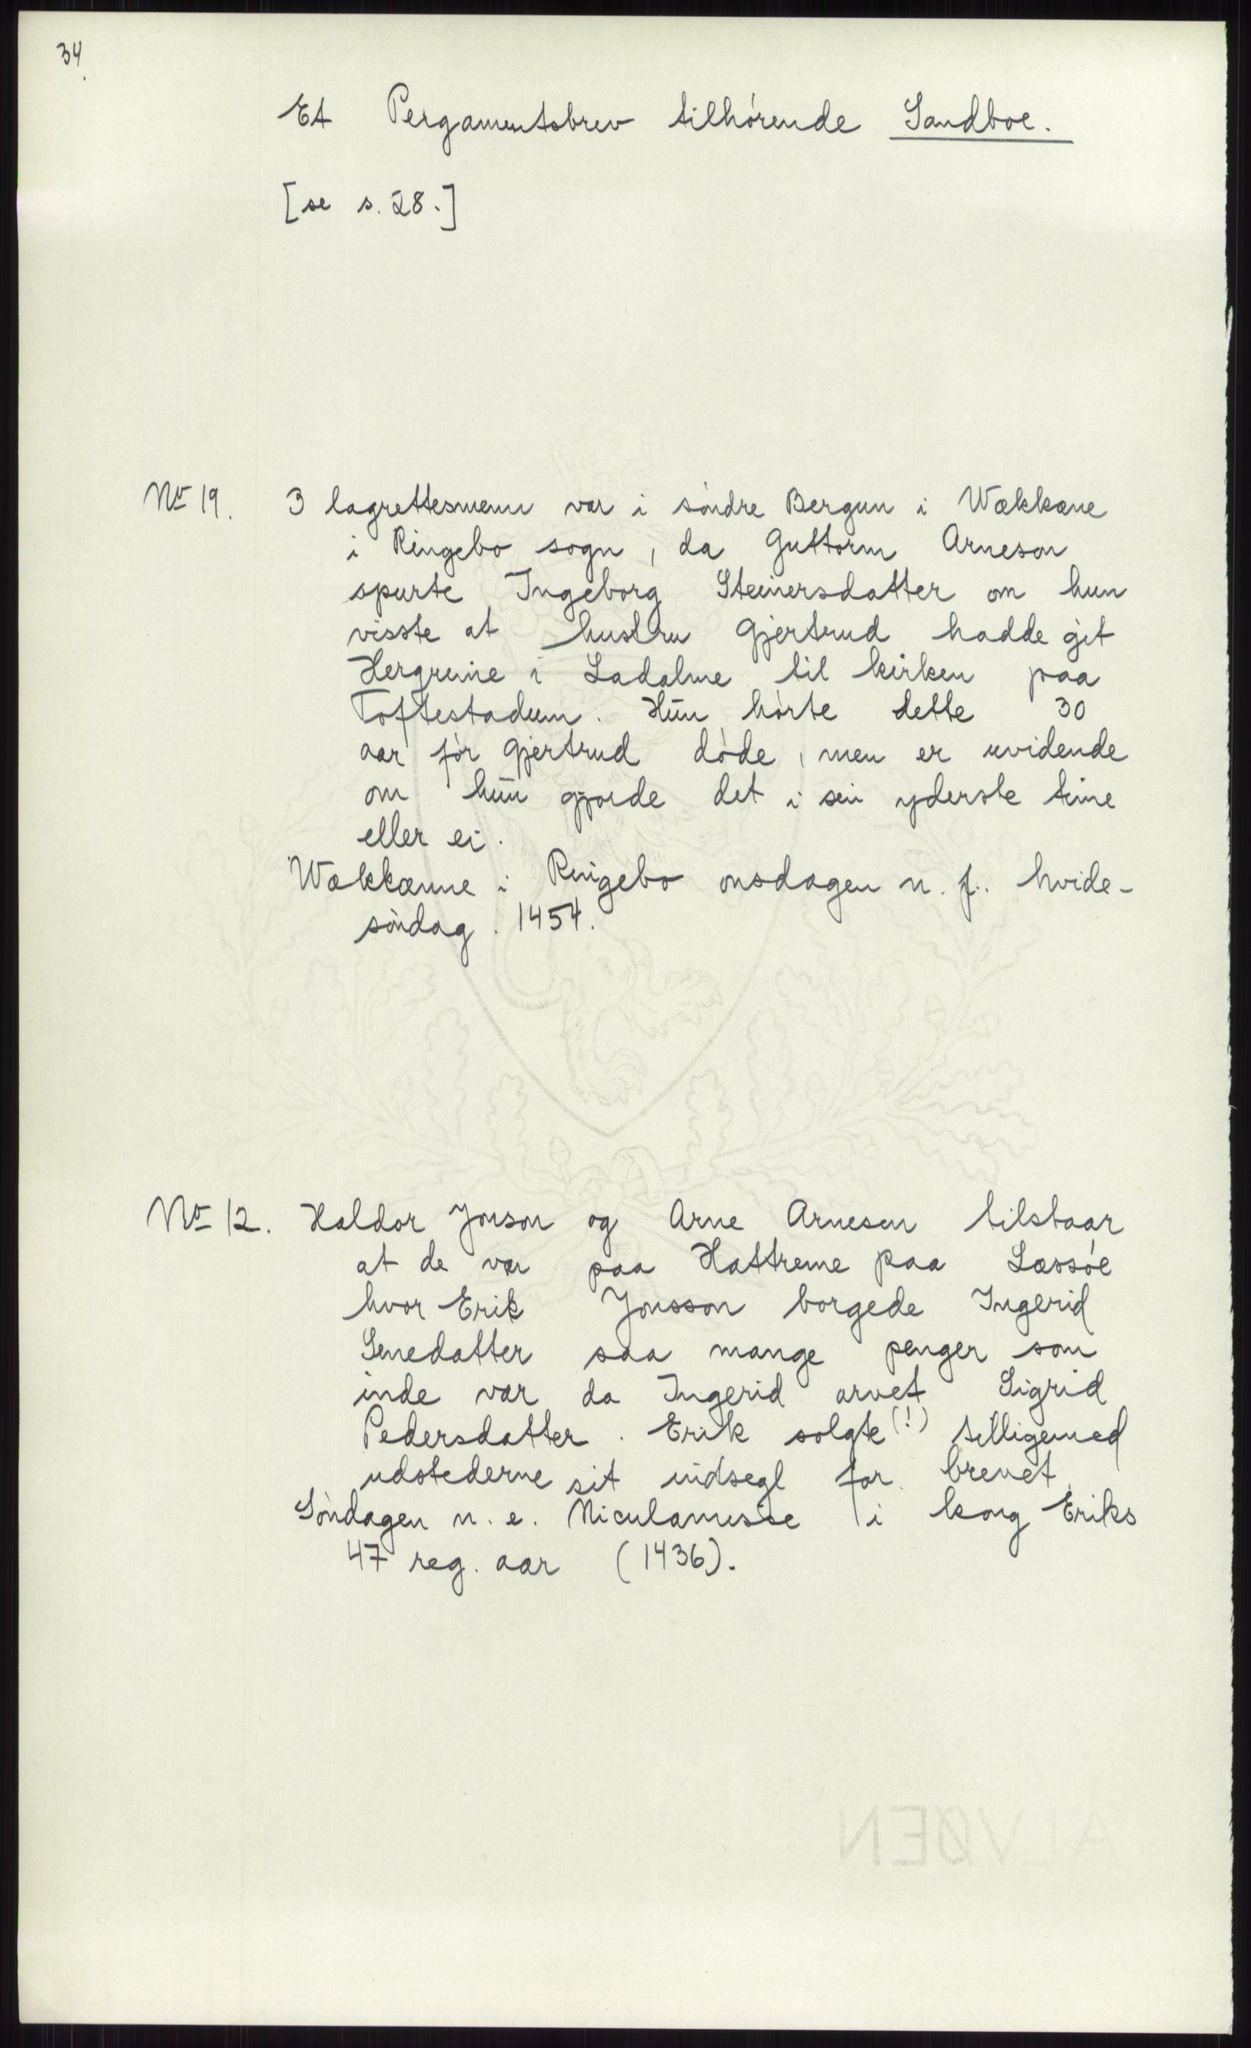 34.
Et Pergamentsbrev tilhørende Sandboe.
[se s. 28.]
No 19. 3 lagrettesmenn var i søndre Bergum i Wækkæne
i Ringebo sogn, da Guttorm Arneson
spurte Ingeborg Steinersdatter om hun
visste at hustru Gjertrud hadde git
Hergreine i Ladalme til kirken paa
Toftestadum. Hun hørte dette 30
aar før Gjertrud døde, men er uvidende
om hun gjorde det i sin yderste time
eller ei.
Wækkænne i Ringebo onsdagen n. f. hvide-
søndag. 1454.
No 12. Haldor Jonson og Arne Arnesen tilstaar
at de var paa Hattreme paa Læssøe
hvor Erik Jonsson borgede Ingerid
Senedatter saa mange penger som
inde var da Ingerid arvet Sigrid
Pedersdatter. Erik solgte (!) tilligemed
udstederne sit indsegl for brevet
Søndagen n. e. Niculamesse i kong Eriks
47 reg. aar (1436).
ALVØEN